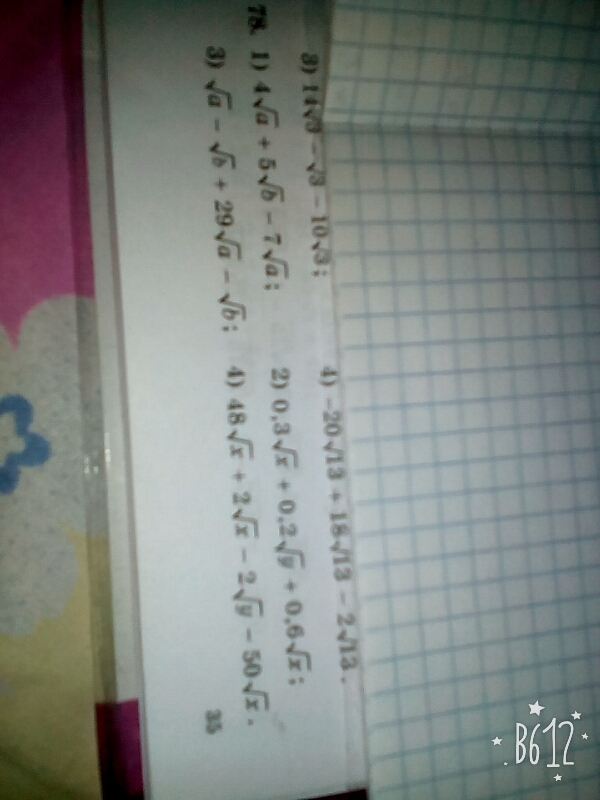 3) 14√3 − √3 − 10√3; 4) −20√13 + 18√13 − 2√13.
78. 1) 4√a + 5√b − 7√a; 2) 0,3√x + 0,2√y + 0,6√x;
3) √a − √b + 29√a − √b; 4) 48√x + 2√x − 2√y − 50√x.
35
B612